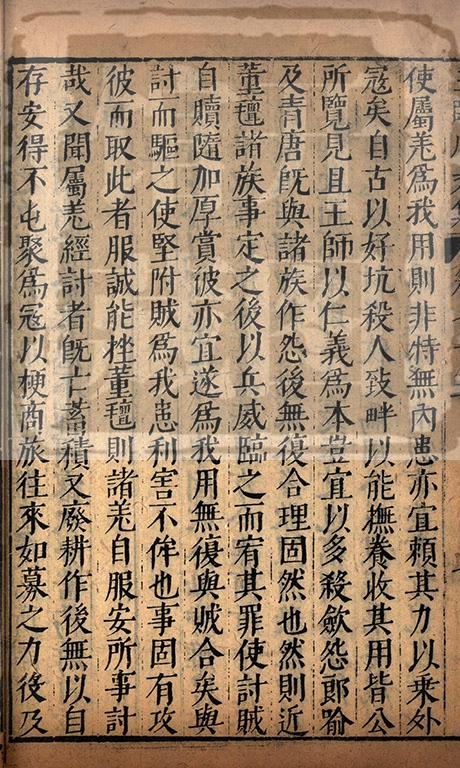 使屬羌爲我用則非特無內患亦宜賴其力以乘外
冦矣自古以好坑殺人致畔以能撫養收其用皆公
所覽見且王師以仁義爲本豈宜以多殺歛怨郎喻
及青唐旣與諸族作怨後無復合理固然也然則近
董氊諸族事定之後以兵威臨之而宥其罪使討賊
自贖隨加厚賞彼亦宜遂爲我用無復與賊合矣與
討而驅之使堅附賊爲我患利害不侔也事固有攻
彼而取此者服誠能挫董氊則諸羌自服安所事討
哉又聞屬羌經討者旣亡蓄積又廢耕作後無以自
存安得不屯聚爲冦以梗商旅往來如募之力役及